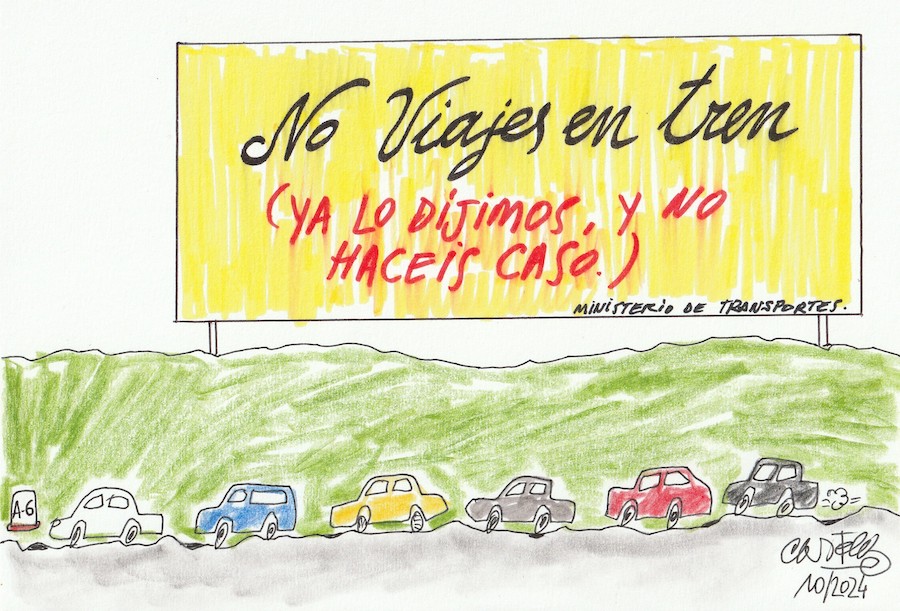 No Viajes en tren
(YA LO DIJIMOS, Y NO
HACEIS CASO.)
MINISTERIO DE TRANSPORTES.
A-6
10/2024